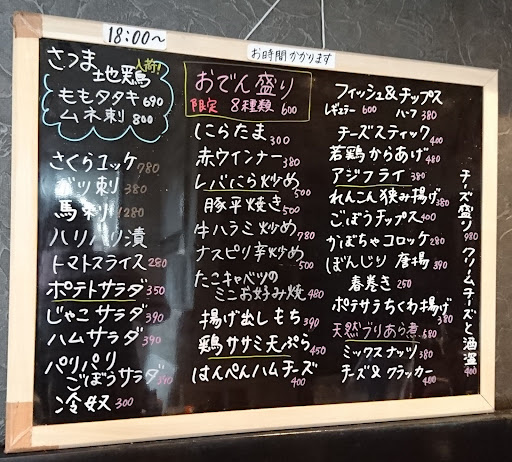 18:00〜
お時間かかります
さつま地鶏
入荷!
ももタタキ 690
ムネ刺 800
さくらユッケ 780
ガツ刺 380
馬刺 1280
ハリハリ漬
トマトスライス 280
ポテトサラダ 350
じゃこサラダ 390
ハムサラダ 390
パリパリ
ごぼうサラダ 390
冷奴 300
おでん盛り
限定 8種類 600
にらたま 300
赤ウインナー 380
レバにら炒め 500
豚平焼き 500
牛ハラミ炒め 780
ナスピリ辛炒め 500
たこキャベツの
ミニお好み焼 480
揚げ出しもち 390
鶏ササミ天ぷら 450
はんぺんハムチーズ 400
フィッシュ&チップス
レギュラー 600 ハーフ 380
チーズスティック 400
若鶏からあげ 480
アジフライ 380
れんこん挟み揚げ 380
ごぼうチップス 400
かぼちゃコロッケ 280
ぼんじり唐揚 390
春巻き 250
ポテサラちくわ揚げ 380
天然ブリあら煮 680
ミックスナッツ 380
チーズ&クラッカー 400
チーズ盛り 980
クリームチーズと酒盗 400